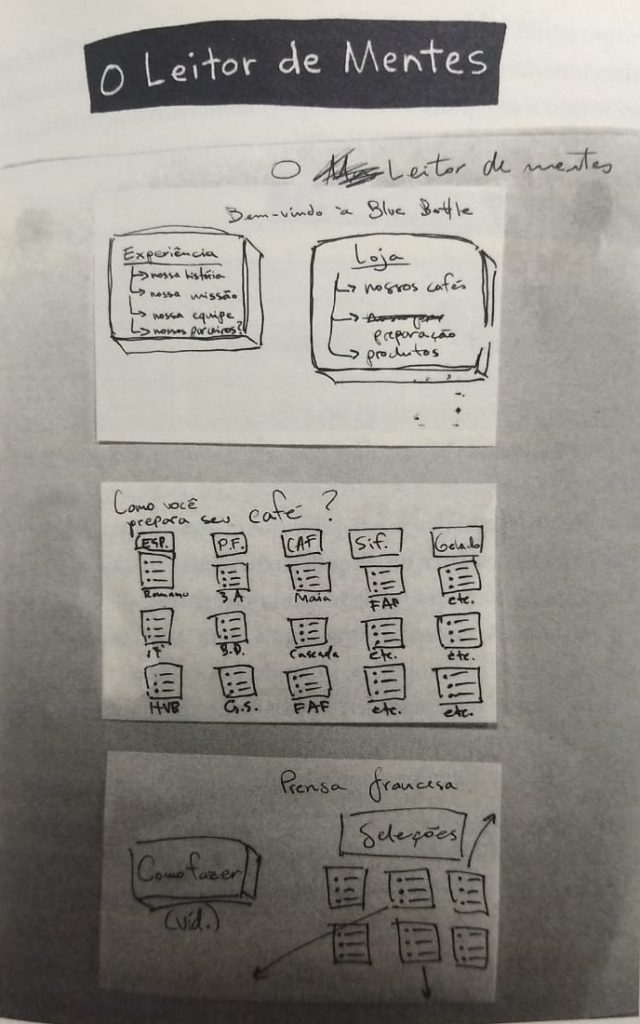 O Leitor de Mentes
O Leitor de mentes
Bem-vindo à Blue Bottle
Experiência
nossa história
nossa missão
nossa equipe
nossos parceiros?
Loja
nossos cafés
preparação
produtos
Como você
prepara seu café?
ESP. P.F. CAF Sif. Gelado
Romano 3A Maia FAF etc.
17 B.D. Cascada etc. etc.
HVB G.S. FAF etc. etc.
Prensa francesa
Seleções
Como fazer
(vid.)